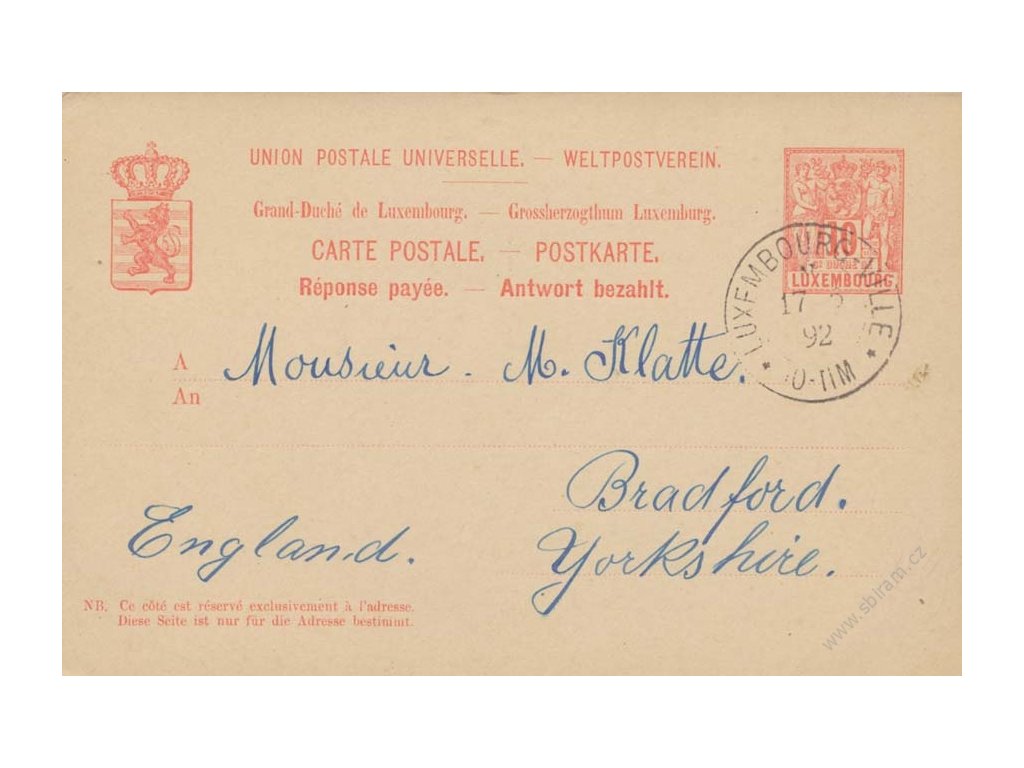 UNION POSTALE UNIVERSELLE. — WELTPOSTVEREIN.
Grand-Duché de Luxembourg. — Grossherzogthum Luxemburg.
CARTE POSTALE. — POSTKARTE.
Réponse payée. — Antwort bezahlt.
10
LUXEMBOURG
LUXEMBOURG VILLE
17
92
10-11M
A Monsieur. M. Klatte.
An
Bradford.
England. Yorkshire.
NB. Ce côté est réservé exclusivement à l'adresse.
Diese Seite ist nur für die Adresse bestimmt.
www.sbiram.cz